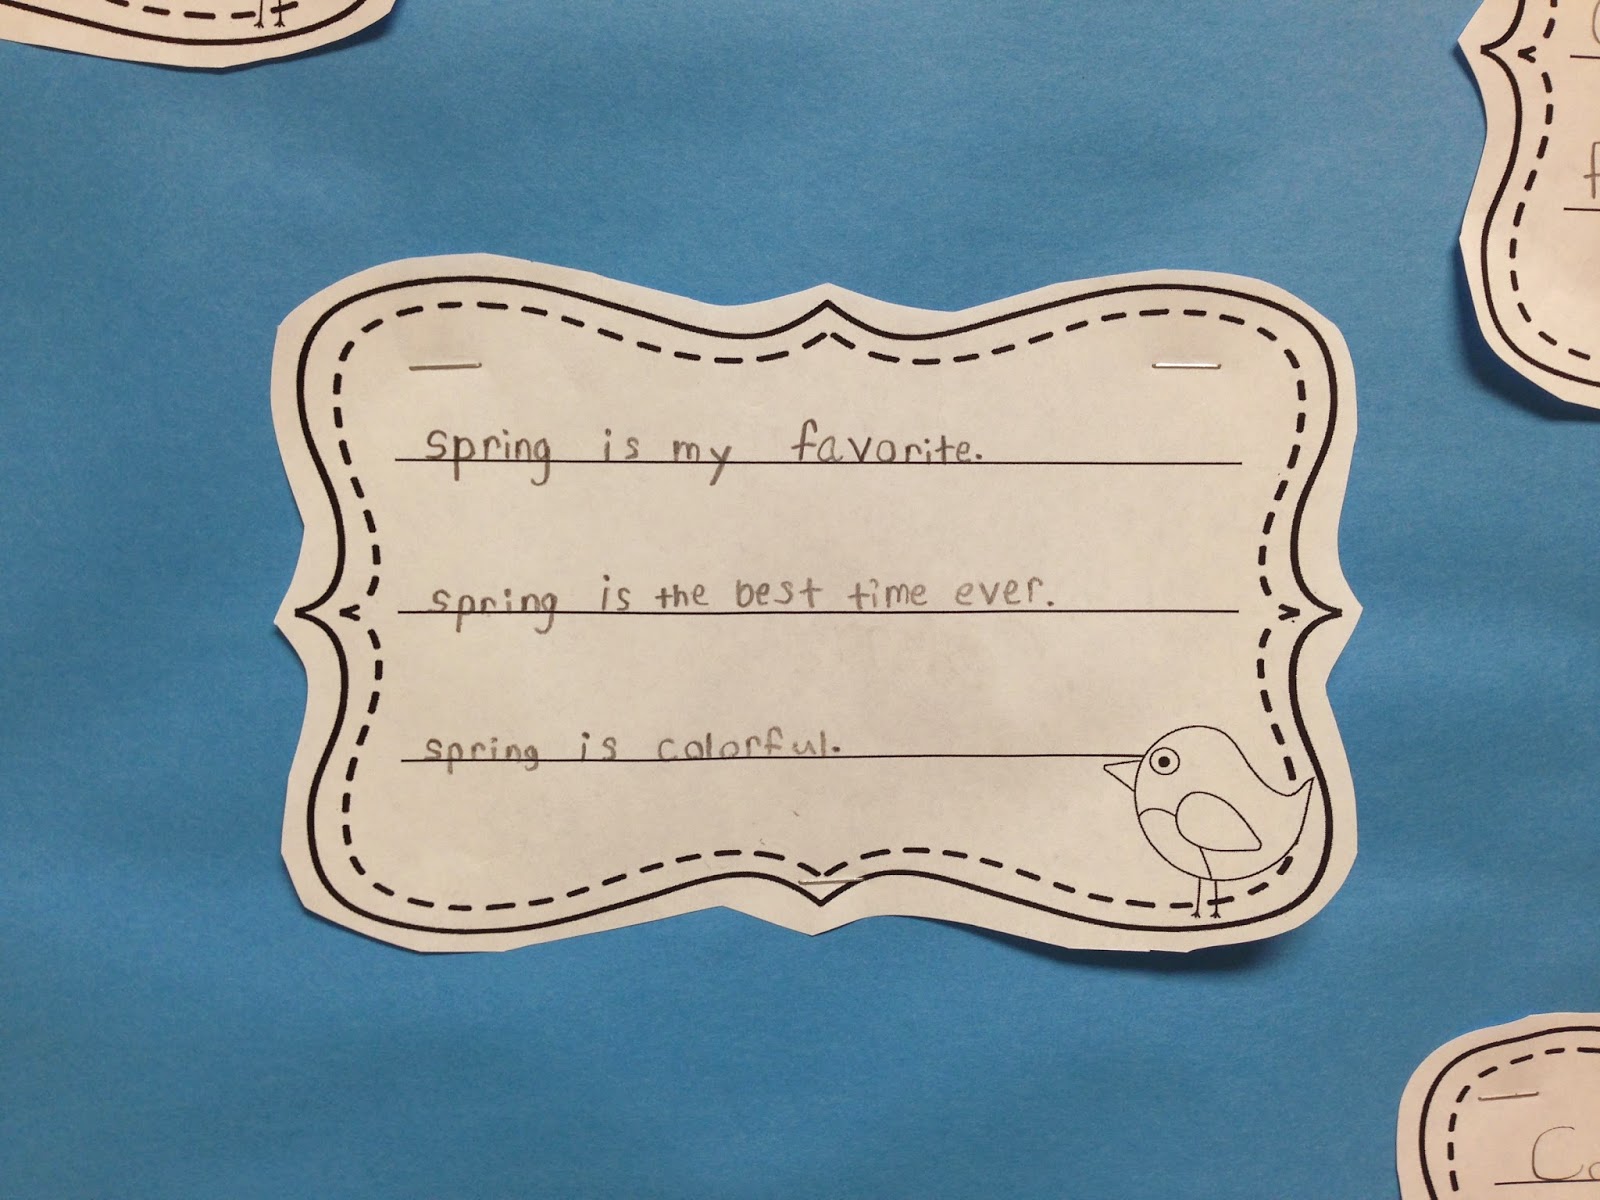 spring is my favorite.
spring is the best time ever.
spring is colorful.